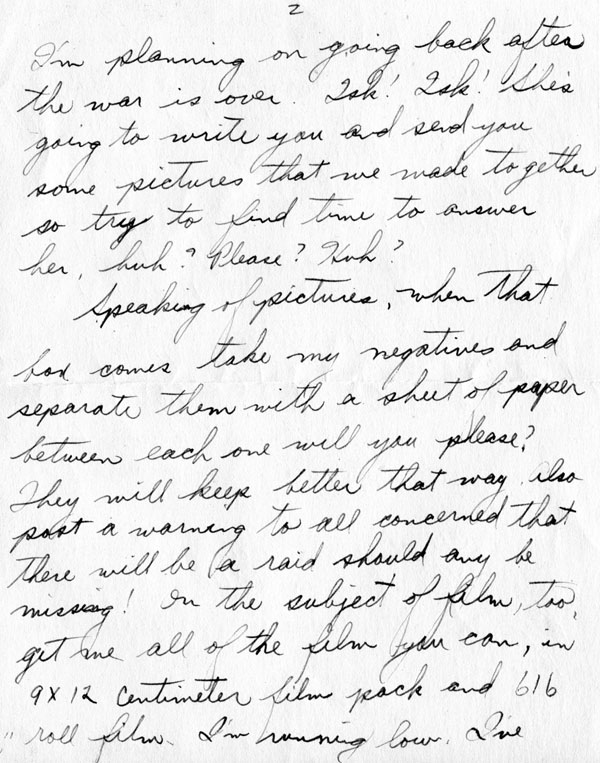 2
I'm planning on going back after
the war is over. Tsk! Tsk! She's
going to write you and send you
some pictures that we made together
so try to find time to answer
her, huh? Please? Huh?
Speaking of pictures, when that
box comes take my negatives and
separate them with a sheet of paper
between each one will you please?
They will keep better that way. Also
post a warning to all concerned that
there will be a raid should any be
missing! On the subject of film, too,
get me all of the film you can, in
9 x 12 centimeter film pack and 616
roll film. I'm running low. I've